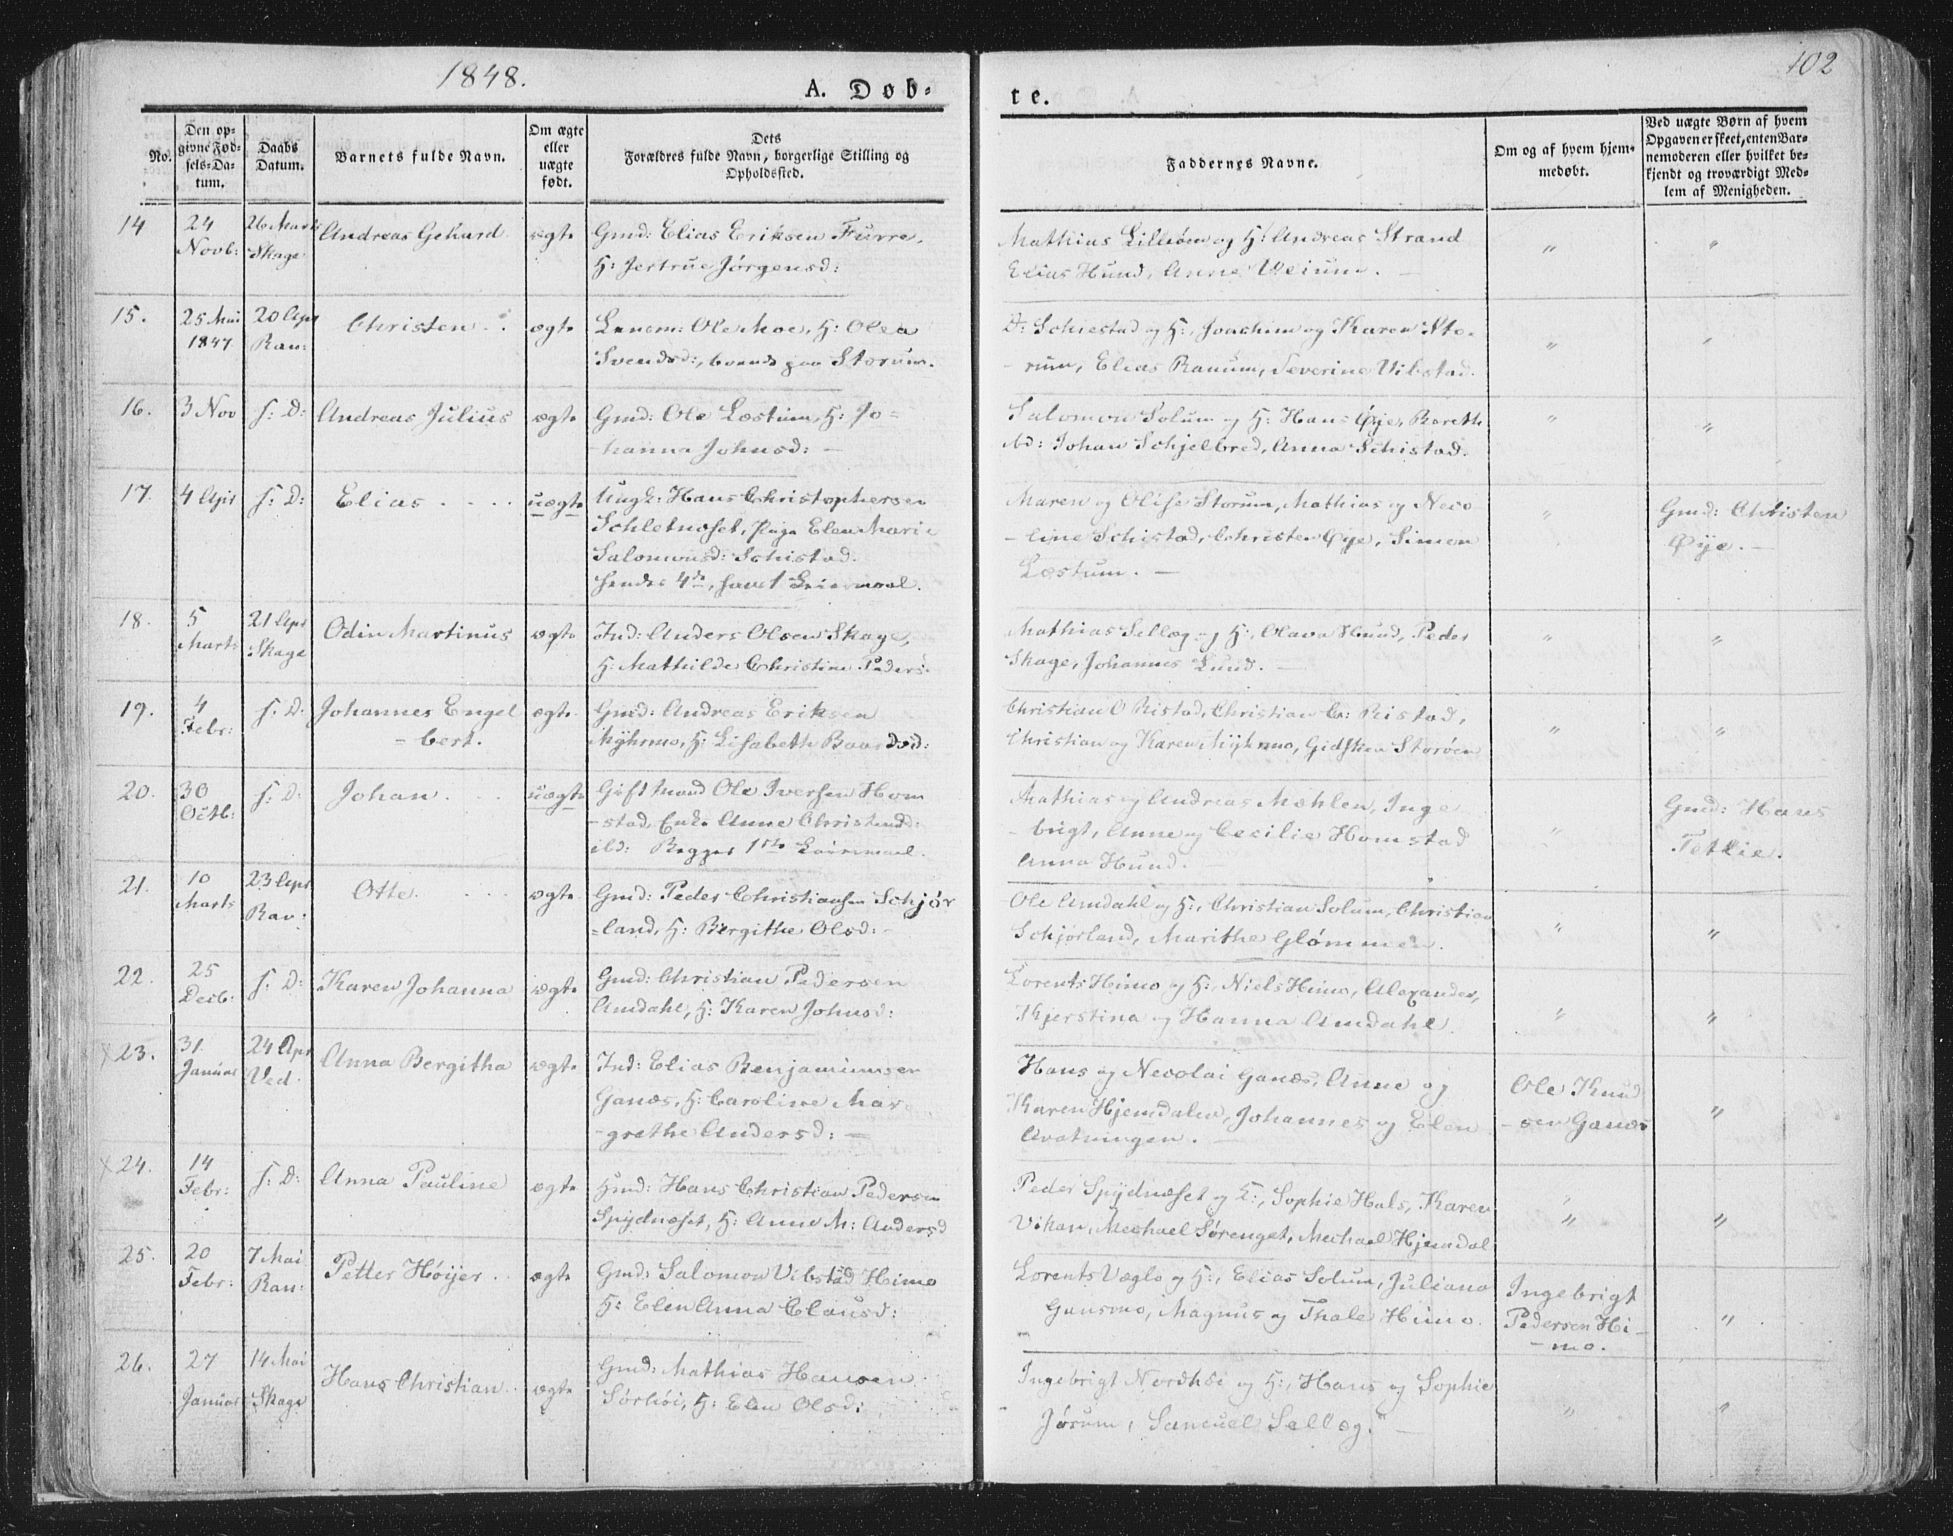 1848.
A. Døb-
te.
102
No.
Den op-
givne Fød-
sels-Da-
tum.
Daabs
Datum.
Barnets fulde Navn.
Om ægte
eller
uægte
født.
Dets
Forældres fulde Navn, borgerlige Stilling og
Opholdssted.
Faddernes Navne.
Om og af hvem hjem-
medøbt.
Ved uægte Børn af hvem
Opgaven er skeet, enten Bar-
nemoderen eller hvilket be-
kjendt og troværdigt Med-
lem af Menigheden.
14 24 26 Marts
Novb: Skage Andreas ægte Gmd: Elias Eriksen Furre,
H: Jertrue Jørgensd:
Mathias og H: Andreas Strand " "
Elias Hund, Anne Veium. -
15. 25 Mai 20 Apr Christen ægte Ole Moe, H: Olea
1847 Ran: Svendsd:, boende paa Storum.
Schistad og H:, Joachim og Karen Sto- " "
- rum, Elias Ranum, Severine Vibstad.
16. 3 Nov s: D: Andreas Julius ægte Gmd: Ole Læstum, H: Jo=
hanna Johnsd: -
Salomon Solum og H: Hans Øye, Bereth " "
Johan Schjelbred, Anna Schistad.
17. 4 Apr s: D: Elias uægte Ungk: Hans Christophersen
Schletnæset, Pige Elen Marie
Salomonsd: Schistad.
hendes 4de, hans 1 Leiermaal.
Maren og Olise Storum, Mathias og Nico " Gmd: Christen
- line Schistad, Christen Øye, Simon Øye. -
Læstum. -
18. 5 21 Apr Odin Martinus ægte Ind: Anders Olsen Skage,
Marts Skage H: Mathilde Christine Pedersd:
Mathias Sellæg og H:, Olava Hund, Peder " "
Skage, Johannes Lund. -
19. 4 s: D: Johannes Engel ægte Gmd: Andreas Eriksen
Febr: - bert. Myhrmo, H: Lisabeth Baardsd:
Christian O Ristad, Christian C: Ristad, " "
Christian og Karen Myhrmo, Storøen
20. 30 s: D: Johan uægte Gift Mand Ole Iversen Hom
Octb: - stad, Enke Anne Christensd:
ibd: Begges 1ste Leiermaal.
Mathias og Andreas Mæhlen, Inge " Gmd: Hans
- brigt, Anne og Cecilie Homstad Tetlie.
Anna Hund.
21. 10 23 Apr Otte ægte Gmd: Peder Christiansen Schjør
Marts Ran: =land, H: Bergithe Olsd: -
Ole Amdahl og H:, Christian Solum, Christian " "
Schjørland, Marithe Glømmen.
22. 25 s: D: Karen Johanna ægte Gmd: Christian Pedersen
Decb: Amdahl, H: Karen Johnsd:
Lorents Himo og H:, Niels Himo, Alexander, " "
Kjerstina og Hanna Amdahl.
23. 31 24 Apr Anna Bergitha ægte Ind: Elias Benjaminsen
Januar Ved. Ganæs, H: Caroline Mar-
- grethe Andersd: -
Hans og Nicolai Ganæs, Anne og Ole Knud "
Karen Hjemdalen, Johannes og Elen - sen Ganæs
Avatningen. -
24. 14 s: D: Anna Pauline ægte Hmd: Hans Christian Pedersen
Febr: Spydnæset, H: Anne M: Andersd
Peder Spydnæset og H:, Sophie Hals, Karen " "
Vikan, Mechael Sørenget, Mechael Hjemdal
25. 20 7 Mai Petter Höyer ægte Gmd: Salomon Vibstad Himo
Febr: Ran: H: Elen Anna Clausd:
Lorents Vægle og H:, Elias Solum, Juliana Ingebrigt "
Gansmo, Magnus og Thale Himo Pedersen Hi-
- mo.
26. 27 14 Mai Hans Christian ægte Gmd: Mathias Hansen
Januar Skage Sørhöi, H: Elen Olsd:
Ingebrigt Nordhöi og H:, Hans og Sophie " "
Jørum, Samuel Sellæg. -